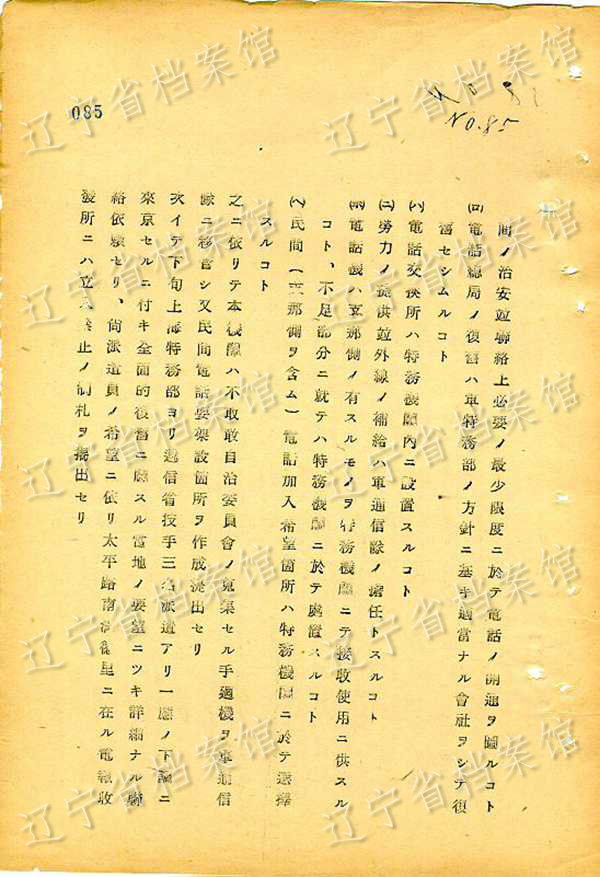 085
NO.85
間ノ治安竝聯絡上必要ノ最少限度ニ於テ電話ノ開通ヲ圖ルコト
(ロ)電話總局ノ復舊ハ軍特務部ノ方針ニ基キ適當ナル會社ヲシテ復
舊セシムルコト
(ハ)電話交換所ハ特務機關內ニ設置スルコト
(ニ)勞力ノ提供竝外線ノ補給ハ軍通信隊ノ擔任トスルコト
(ホ)電話機ハ支那側ノ有スルモノヲ特務機關ニテ接收使用ニ供スル
コト、不足部分ニ就テハ特務機關ニ於テ處置スルコト
(ヘ)民間(支那側ヲ含ム)電話加入希望箇所ハ特務機關ニ於テ選擇
スルコト
之ニ依リテ本機關ハ不取敢自治委員會ノ蒐集セル手過機ヲ軍通信
隊ニ移管シ又民間電話要架設箇所ヲ作成提出セリ
次イデ下旬上海特務部ヨリ遞信省技手三名派遣アリ一應ノ下論ニ
來京セルニ付キ全面的復舊ニ關スル當地ノ要望ニツキ詳細ナル聯
絡依賴セリ、尚派遣員ノ希望ニ依リ太平路南 里ニ在ル電報收
發所ニハ立入禁止ノ制札ヲ揭出セリ
辽宁省档案馆
辽宁省档案馆
辽宁省档案馆
辽宁省档案馆
辽宁省档案馆
辽宁省档案馆
辽宁省档案馆
辽宁省档案馆